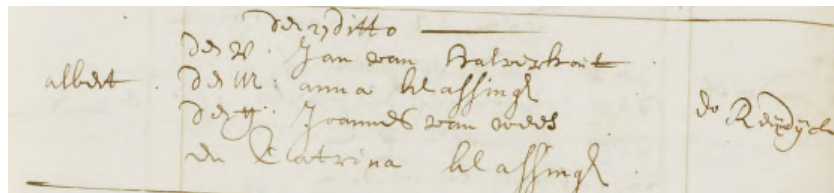 den 27 ditto
albert . de V. Jan van Halverhout
de M. anna klassing
de g. Joannes van wees
en Catrina klassing
do Reydyck